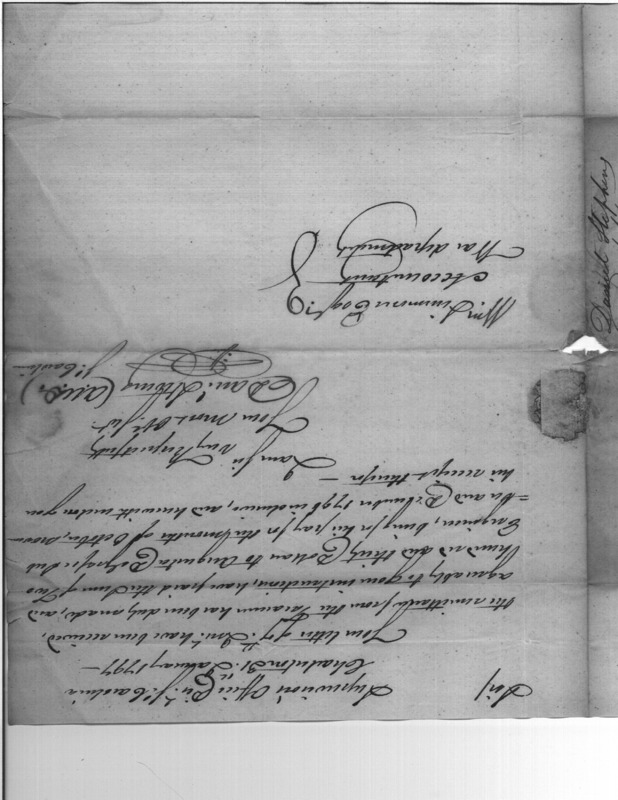 Supervisors Office Di. So. Carolina
Charleston 31. January 1797
Sir/
Your letter of 7th Inst. have been received,
the remittance from the Treasurer has been duly made, and
agreeably to your instructions, have paid the Sum of Two
Hundred and thirty Dollars to Augusta De Grasse Sub
Engineer, being for his pay for the months of October, Nov=
=ber and December 1796 inclusive, and herewith inclose you
his receipt therefor —
I am Sir
very Respectfully
Your most Ob. Servt.
Dan. Stevens
So. Carolina
Wm. Simmons Esqr.
Accountant
War department
Daniel Stephens